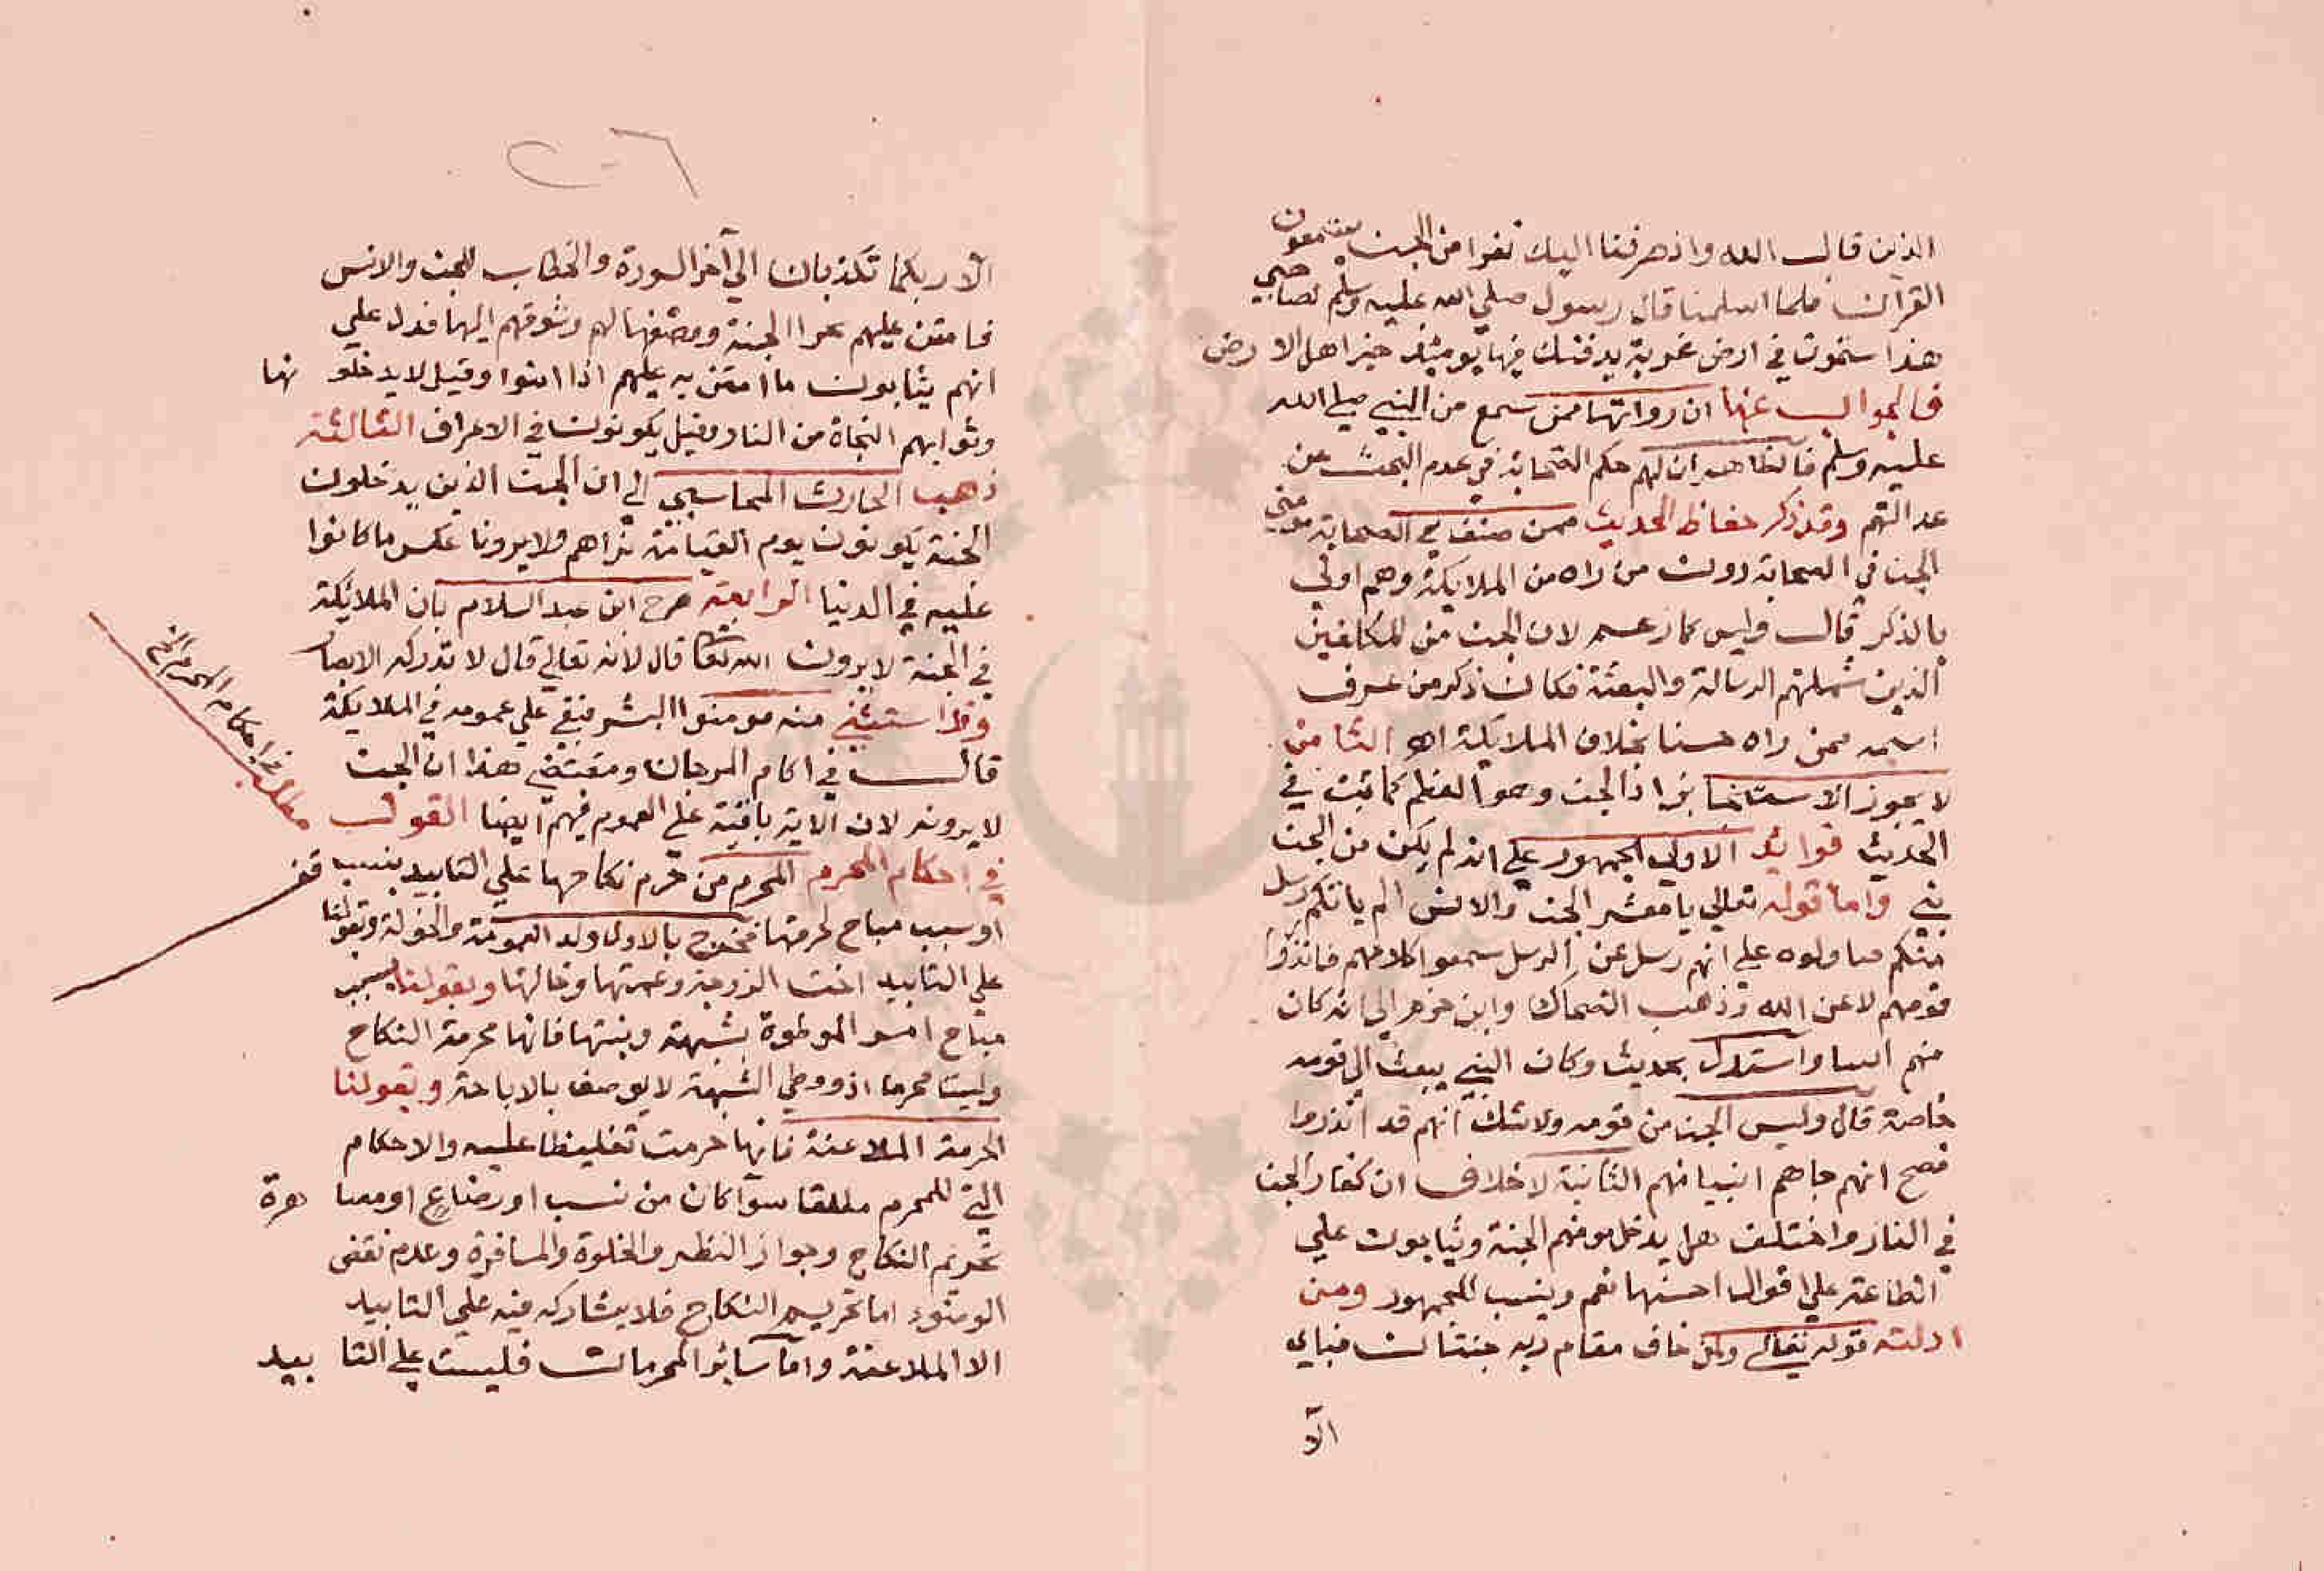 الذين قال الله واذ صرفنا اليك نفرا من الجن يستمعون
القرآن فلما اسلمنا قال رسول صلي الله عليه وسلم لصاحبي
هذا ستموت في ارض غربة يدفنك فيها يومئذ خير اهل الارض
فالجواب عنها ان رواتها ممن سمع من النبي صلي الله
عليه وسلم فالظاهر ان لهم حكم الصحابة في عدم البحث عن
عدالتهم وقد ذكر حفاظ الحديث ممن صنف في الصحابة مومني
الجن في الصحابة دون من راه من الملايكة وهم اولي
بالذكر قال وليس كما زعم لان الجن من المكلفين
الذين شملتهم الرسالة والبعثة فكان ذكر من عرف
اسمه ممن راه حسنا بخلاف الملايكة اهو الثامن
لا يجوز الاستنجا بزاد الجن وهو العظم كما ثبت في
الحديث فوائد الاولي الجمهور علي انه لم يكن من الجن
نبي واما قوله تعالي يا معشر الجن والانس الم ياتكم رسل
منكم فتاولوه علي انهم رسل عن الرسل سمعوا كلامهم فانذروا
قومهم لا عن الله وذهب الضحاك وابن حزم الي انه كان
منهم انبيا واستدل بحديث وكان النبي يبعث الي قومه
خاصة قال وليس الجن من قومه ولا شك انهم قد انذروا
فصح انهم جاهم انبيا منهم الثانية لا خلاف ان كفار الجن
في النار واختلف هل يدخل مومنهم الجنة ويثابون علي
الطاعة علي اقوال احسنها نعم وينسب للجمهور ومن
ادلته قوله تعالي ولمن خاف مقام ربه جنتان فباي
الآ
الآ ربكما تكذبان الي آخر السورة والخطاب للجن والانس
فامتن عليهم بجزا الجنة ووصفها لهم وشوقهم اليها فدل علي
انهم يثابون ما امتن به عليهم اذا امنوا وقيل لا يدخلونها
وثوابهم النجاة من النار وقيل يكونون في الاعراف الثالثة
ذهب الحارث المحاسبي الي ان الجن الذين يدخلون
الجنة يكونون يوم القيامة نراهم ولا يرونا عكس ما كانوا
عليه في الدنيا الرابعة صرح ابن عبد السلام بان الملائكة
في الجنة لا يرون الله تعا قال لانه تعالي قال لا تدركه الابصار
وقد استثني منه مومنوا البشر فبقي علي عمومه في الملايكة
قال في اكام المرجان ومقتضي هذا ان الجن
لا يرونه لان الاية باقية علي العموم فيهم ايضا القول
في احكام المحرم المحرم من حرم نكاحها علي التابيد بنسب قف
او سبب مباح لحرمتها فخرج بالاول ولد العمومة والخولة وبقولنا
علي التابيد اخت الزوجة وعمتها وخالتها وبقولنا بسبب
مباح ام الموطوة بشبهة وبنتها فانها محرمة النكاح
وليست محرما اذ ووطي الشبهة لا يوصف بالاباحة وبقولنا
لحرمة الملاعنة فانها حرمت تغليظا عليه والاحكام
التي للمحرم مطلقا سوآ كان من نسب او رضاع او مصاهرة
تحريم النكاح وجواز النظر والخلوة والمسافرة وعدم نقض
الوضوء اما تحريم النكاح فلا يشاركه فيه علي التابيد
الا الملاعنة واما سائر المحرمات فليست علي التابيد
مطلب في احكام المحرم الخ